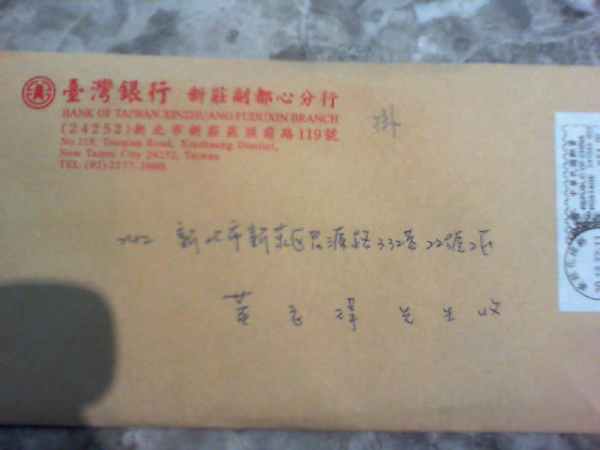 臺灣銀行 新莊副都心分行
BANK OF TAIWAN XINZHUANG FUDUXIN BRANCH
(24252)新北市新莊區頭前路119號
No.119, Touqian Road, Xinzhuang District,
New Taipei City 24252, Taiwan
TEL (02)2277-3888
掛
中華民國郵票
REPUBLIC OF CHINA
POSTAGE
新北市新莊區思源路332巷22號2F
黃 先生收